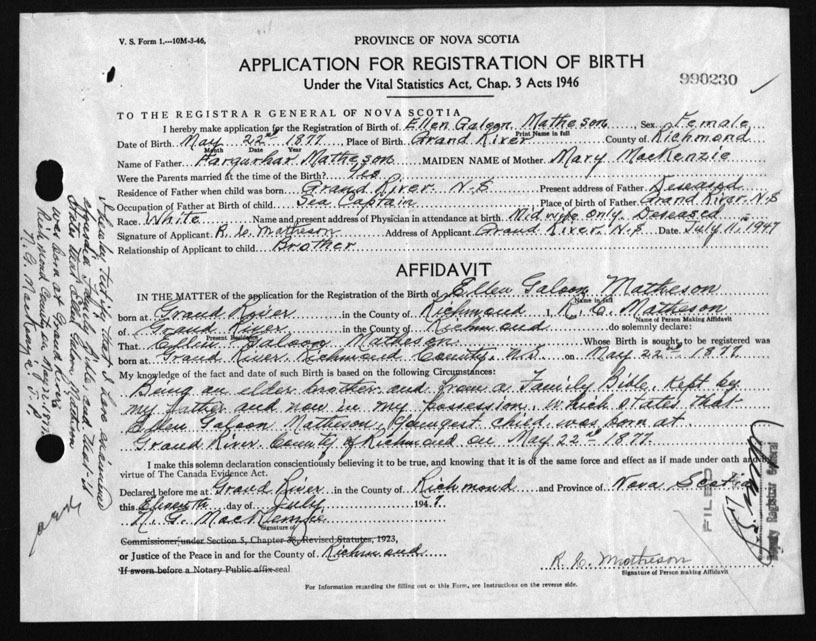 V. S. Form 1.---10M-3-46,
PROVINCE OF NOVA SCOTIA
APPLICATION FOR REGISTRATION OF BIRTH
Under the Vital Statistics Act, Chap. 3 Acts 1946
990230
TO THE REGISTRAR GENERAL OF NOVA SCOTIA
I hereby make application for the Registration of Birth of Ellen Galoon Matheson Sex Female
Print Name in full
Date of Birth May 22nd 1877 Place of Birth Grand River County of Richmond
Month Date Year
Name of Father Farquhar Matheson MAIDEN NAME of Mother Mary MacKenzie
Were the Parents married at the time of the Birth? Yes
Residence of Father when child was born Grand River N.S Present address of Father Deseased
Occupation of Father at Birth of child Sea Captain Place of birth of Father Grand River, N.S
Race White Name and present address of Physician in attendance at birth Midwife only. Deseased
Signature of Applicant R. C. Matheson Address of Applicant Grand River, N.S Date July 11, 1947
Relationship of Applicant to child Brother
AFFIDAVIT
IN THE MATTER of the application for the Registration of the Birth of Ellen Galoon Matheson
Name in full
born at Grand River in the County of Richmond I, R. C. Matheson
Name of Person Making Affidavit
of Grand River, in the County of Richmond do solemnly declare:
Present Residence
That Ellen Galoon Matheson Whose Birth is sought to be registered was
born at Grand River Richmond County, N.S. on May 22nd 1877
My knowledge of the fact and date of such Birth is based on the following Circumstances:
Being an elder brother and from a Family Bible, Kept by
my father and now in my possession, which states that
Ellen Galoon Matheson, youngest child was born at
Grand River. County of Richmond on May 22nd 1877.
I make this solemn declaration conscientiously believing it to be true, and knowing that it is of the same force and effect as if made under oath and by
virtue of The Canada Evidence Act.
Declared before me at Grand River in the County of Richmond and Province of Nova Scotia
this Eleventh day of July 1947
N. G. MacKenzie
Signature of
Commissioner, under Section 5, Chapter 38, Revised Statutes, 1923,
or Justice of the Peace in and for the County of Richmond
If sworn before a Notary Public affix seal
R. C. Matheson
Signature of Person making Affidavit
For Information regarding the filling out of this Form, see Instructions on the reverse side.
I hereby testify that I have examined
Family Bible and that it
States that Ellen Galoon Matheson
was born at Grand River
Richmond County on May 22, 1877
FILED
Deputy Registrar General